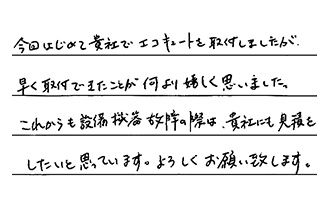 今回はじめて貴社でエコキュートを取付しましたが、
早く取付できたことが何より嬉しく思いました。
これからも設備機器故障の際は、貴社にも見積を
したいと思っています。よろしくお願い致します。